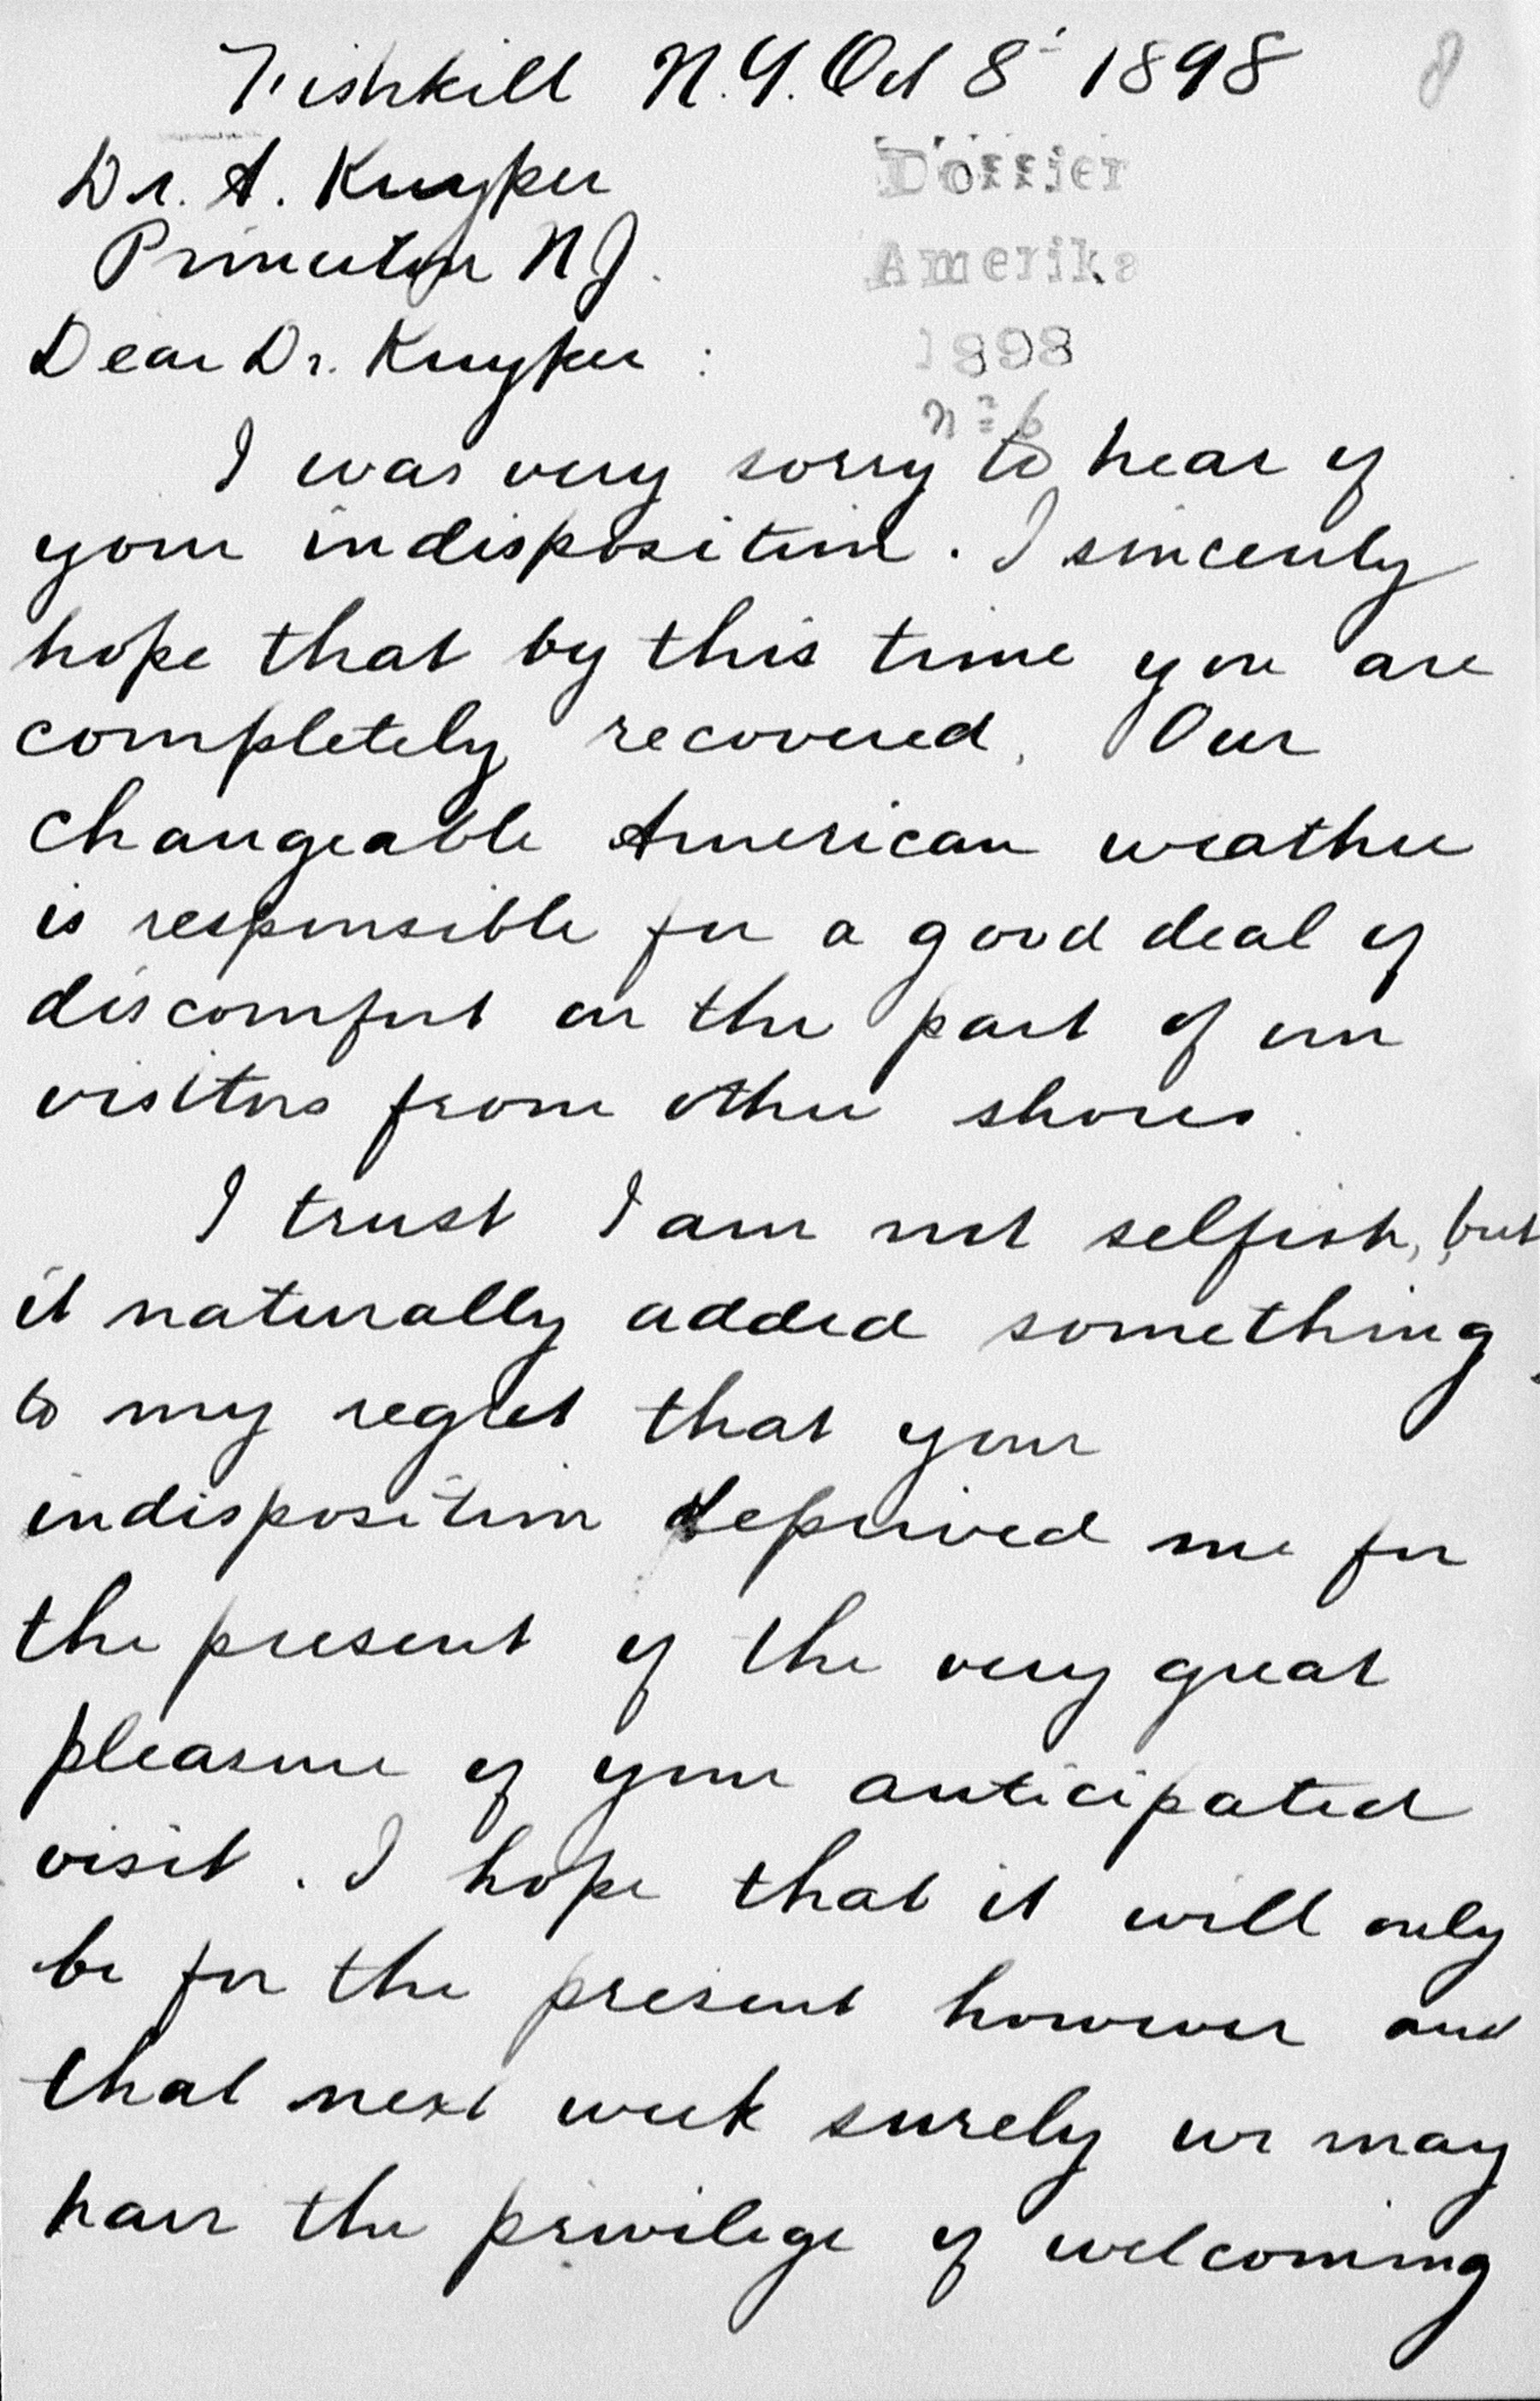 Fishkill N.Y. Oct 8 1898
8
Dr. A. Kuyper
Princeton N J.
Dossier
Amerika
1898
no 6
Dear Dr. Kuyper :
I was very sorry to hear of
your indisposition. I sincerely
hope that by this time you are
completely recovered. Our
changeable American weather
is responsible for a good deal of
discomfort on the part of our
visitors from other shores.
I trust I am not selfish, but
it naturally added something
to my regret that your
indisposition deprived me for
the present of the very great
pleasure of your anticipated
visit. I hope that it will only
be for the present however and
that next week surely we may
have the privilege of welcoming